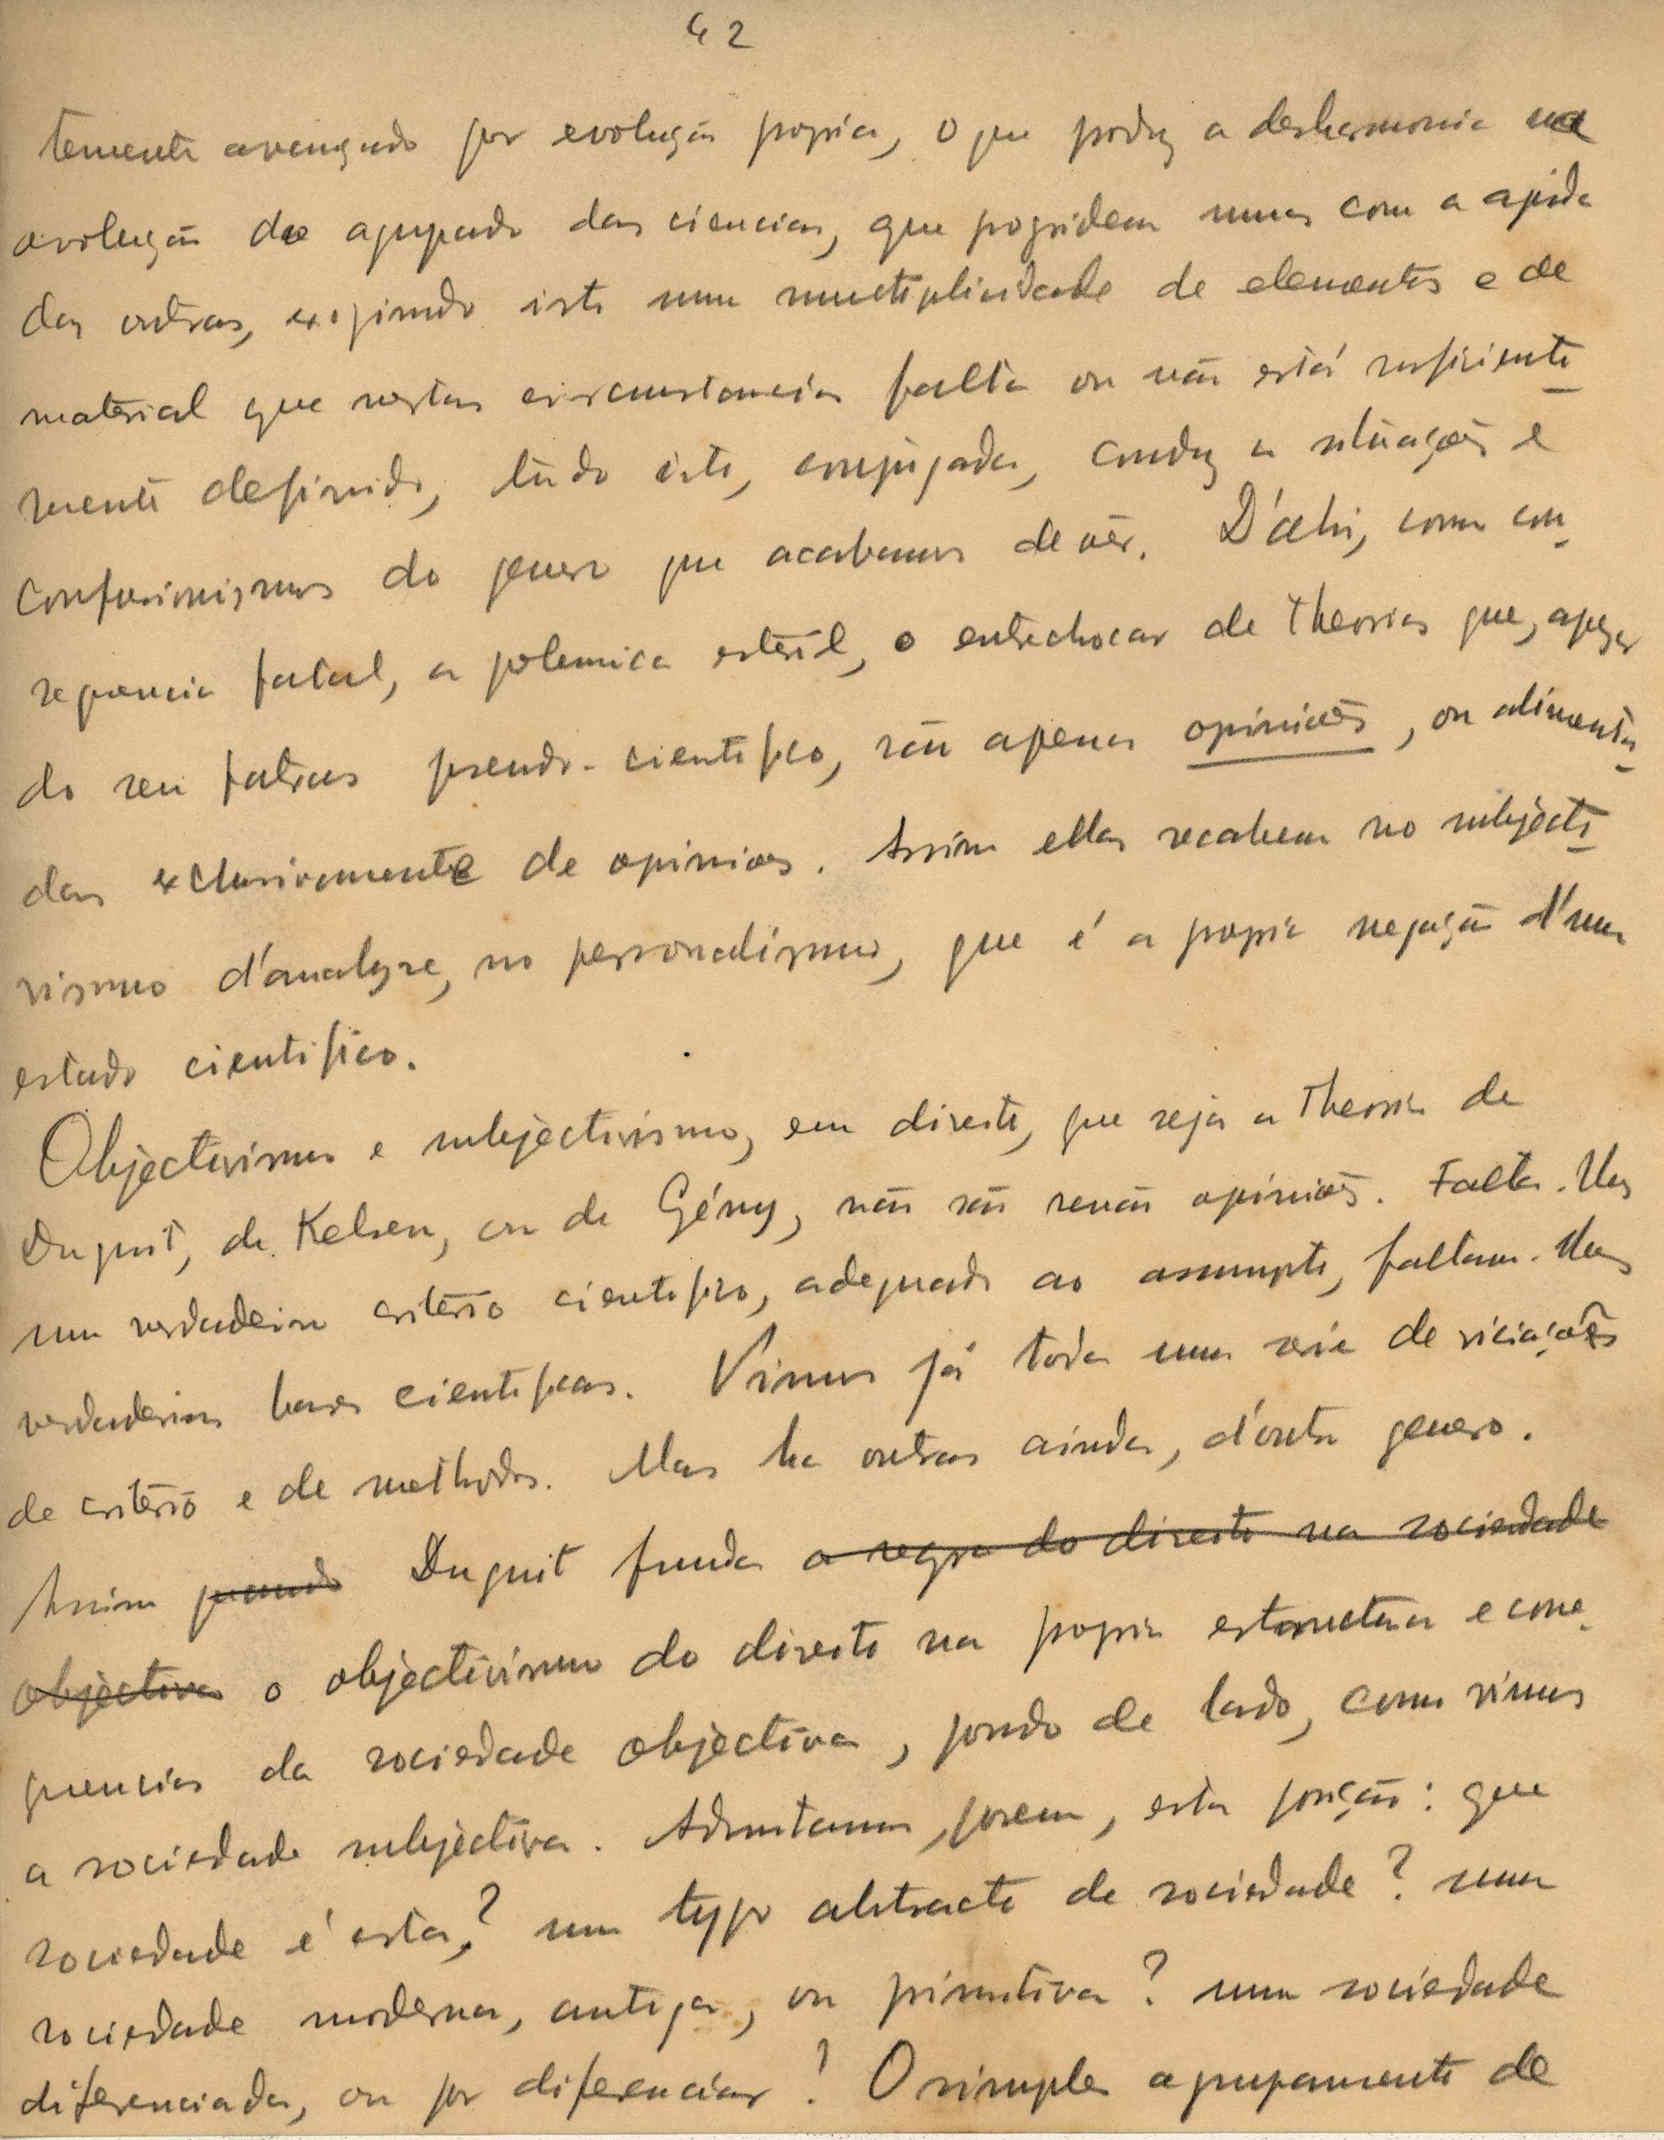 42
temente avançado por evolução propria, o que produz a desharmonia na
evolução do agrupado das ciencias, que progridem umas com a ajuda
das outras, exigindo isto uma multiplicidade de elementos e de
material que nestas circumstancias falta ou não está sufficiente-
mente definido, tudo isto, conjugado, conduz a situações e
confusionismos do genero que acabamos de vêr. D'ahi, como con-
sequencia fatal, a polemica esteril, o entrechocar de theorias que, apezar
do seu fatras pseudo-cientifico, são apenas opiniões, ou alimenta-
das exclusivamente de opiniões. Assim ellas recahem no subjecti-
vismo d'analyse, no personalismo, que é a propria negação d'um
estado cientifico.
Objectivismo e subjectivismo, em direito, quer seja a theoria de
Duguit, de Kelsen, ou de Gény, não são senão opiniões. Falta-lhes
um verdadeiro critério cientifico, adequado ao assumpto, faltam-lhes
verdadeiras bases cientificas. Vimos já toda uma serie de viciações
de critério e de methodos. Mas ha outras ainda, d'outro genero.
Assim quando Duguit funda a regra do direito na sociedade
objectiva o objectivismo do direito na propria estructura e conse-
quencias da sociedade objectiva, pondo de lado, como vimos
a sociedade subjectiva. Admittamos, porem, esta posição: que
sociedade é esta? um typo abstracto de sociedade? uma
sociedade moderna, antiga, ou primitiva? uma sociedade
diferenciada, ou por diferenciar? O simples agrupamento de